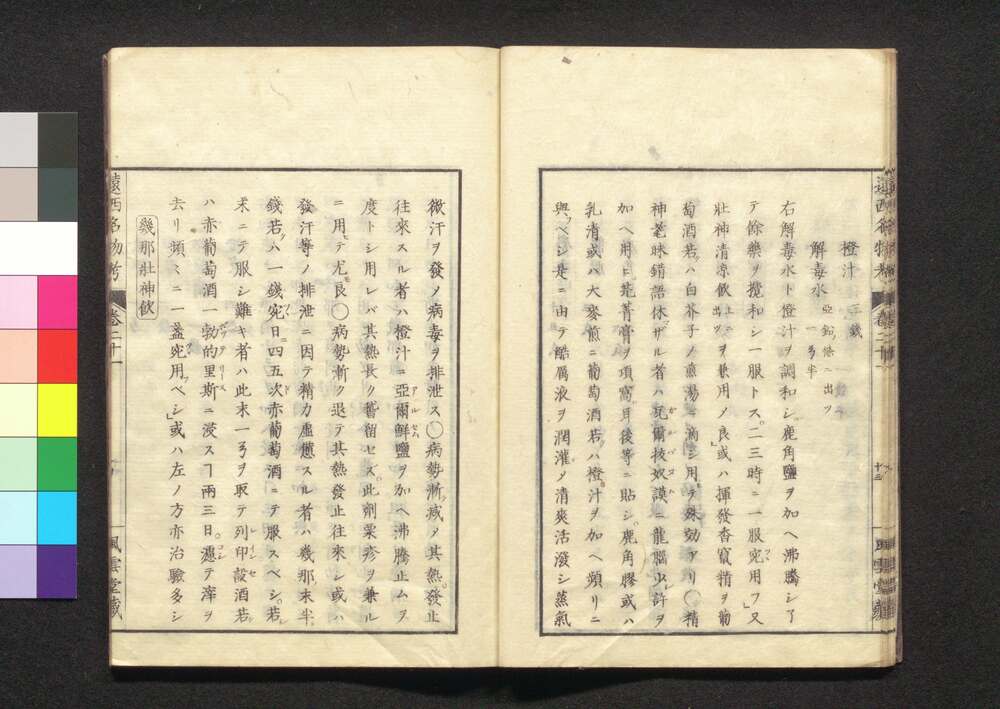 橙汁 三錢
解毒水 亞鉛條ニ出ツ 一ゟ半
右解毒水ト橙汁ヲ調和シ鹿角鹽ヲ加ヘ沸騰シ了
テ餘藥ヲ攪和シ一服トス。二三時ニ一服宛用フ」又
壯神清凉飮上ニ出ツヲ兼用ノ良」或ハ揮發香竄精ヲ葡
萄酒若ハ白芥子ノ煎湯ニ滴シ用テ殊効アリ〇精
神耄昧錯語休ザル者ハ瓦爾抜奴謨ニ龍腦少許ヲ
加ヘ用ヒ芫菁膏ヲ項窩耳後等ニ貼シ。鹿角膠或ハ
乳清或ハ大麥煎ニ葡萄酒若ハ橙汁ヲ加ヘ頻リニ
與ベシ是ニ由テ酷厲液ヲ潤灌メ清爽活潑シ蒸氣
遠西名物考 卷二十一 十三 風雲堂藏
微汗ヲ發メ病毒ヲ排泄ス〇病勢漸減メ其熱。發止
往來スル者ハ橙汁ニ亞爾鮮鹽ヲ加ヘ沸騰止ムヲ
度トシ用レバ其熱長ク稽留セズ。此劑粟疹ヲ兼ル
ニ用テ尤良〇病勢漸ク退テ其熱發止往來シ或ハ
發汗等ノ排泄ニ因テ精力虛憊スル者ハ幾那末半
錢若ハ一錢宛日ニ四五次赤葡萄酒ニテ服スベシ。若
末ニテ服シ難キ者ハ此末一ゟヲ取テ列印設酒若
ハ赤葡萄酒一勃的里斯ニ浸スヿ兩三日。濾テ滓ヲ
去リ頻々ニ一盞宛用ベシ」或ハ左ノ方亦治驗多シ
幾那壯神飮
遠西名物考 卷二十一 風雲堂藏